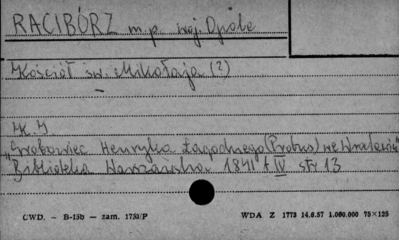 RACIBÓRZ m.p. woj. Opole
Kościół św. Mikołaja (?)
"Grobowiec Henryka Łagodnego (Probus) we Wrocławiu"
Biblioteka Warszawska 1841 t. IV str 13
CWD. — B-15b — zam. 1753/P WDA Z 1773 14.6.57 1.000.000 75×125